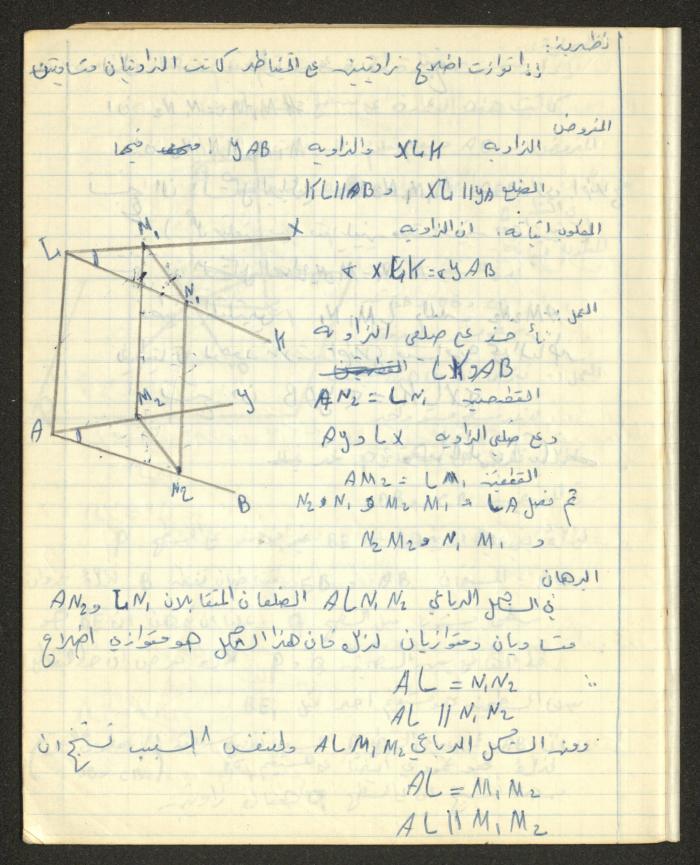 نظرية:
إذا توازت اضلاع زاويتين على التناظر كانت الزاويتان متساويتين
المفروض
الزاويه XLK والزاويه YAB فيها
الضلع XL || YA, و KL || AB
المطلوب اثباته: ان الزاويه
∢ XLK = ∢ YAB
العمل:
نأخذ على ضلعي الزاويه
LK و AB
القطعتين AN2 = LN1
وعلى ضلعي الزاويه LX و AY
القطعتين AM2 = LM1
ثم نصل LA و M1 M2 و N1 و N2
و N1 M1 و N2 M2
L
M1
X
N1
K
M2
Y
A
N2
B
البرهان
في الشكل الرباعي ALN1N2 الضلعان المتقابلان LN1 و AN2
متساويان ومتوازيان لذلك فان هذا الشكل هو متوازي اضلاع
∴ AL = N1N2
AL || N1N2
ومن الشكل الرباعي ALM1M2 ولنفس السبب نستنتج ان
AL = M1M2
AL || M1M2